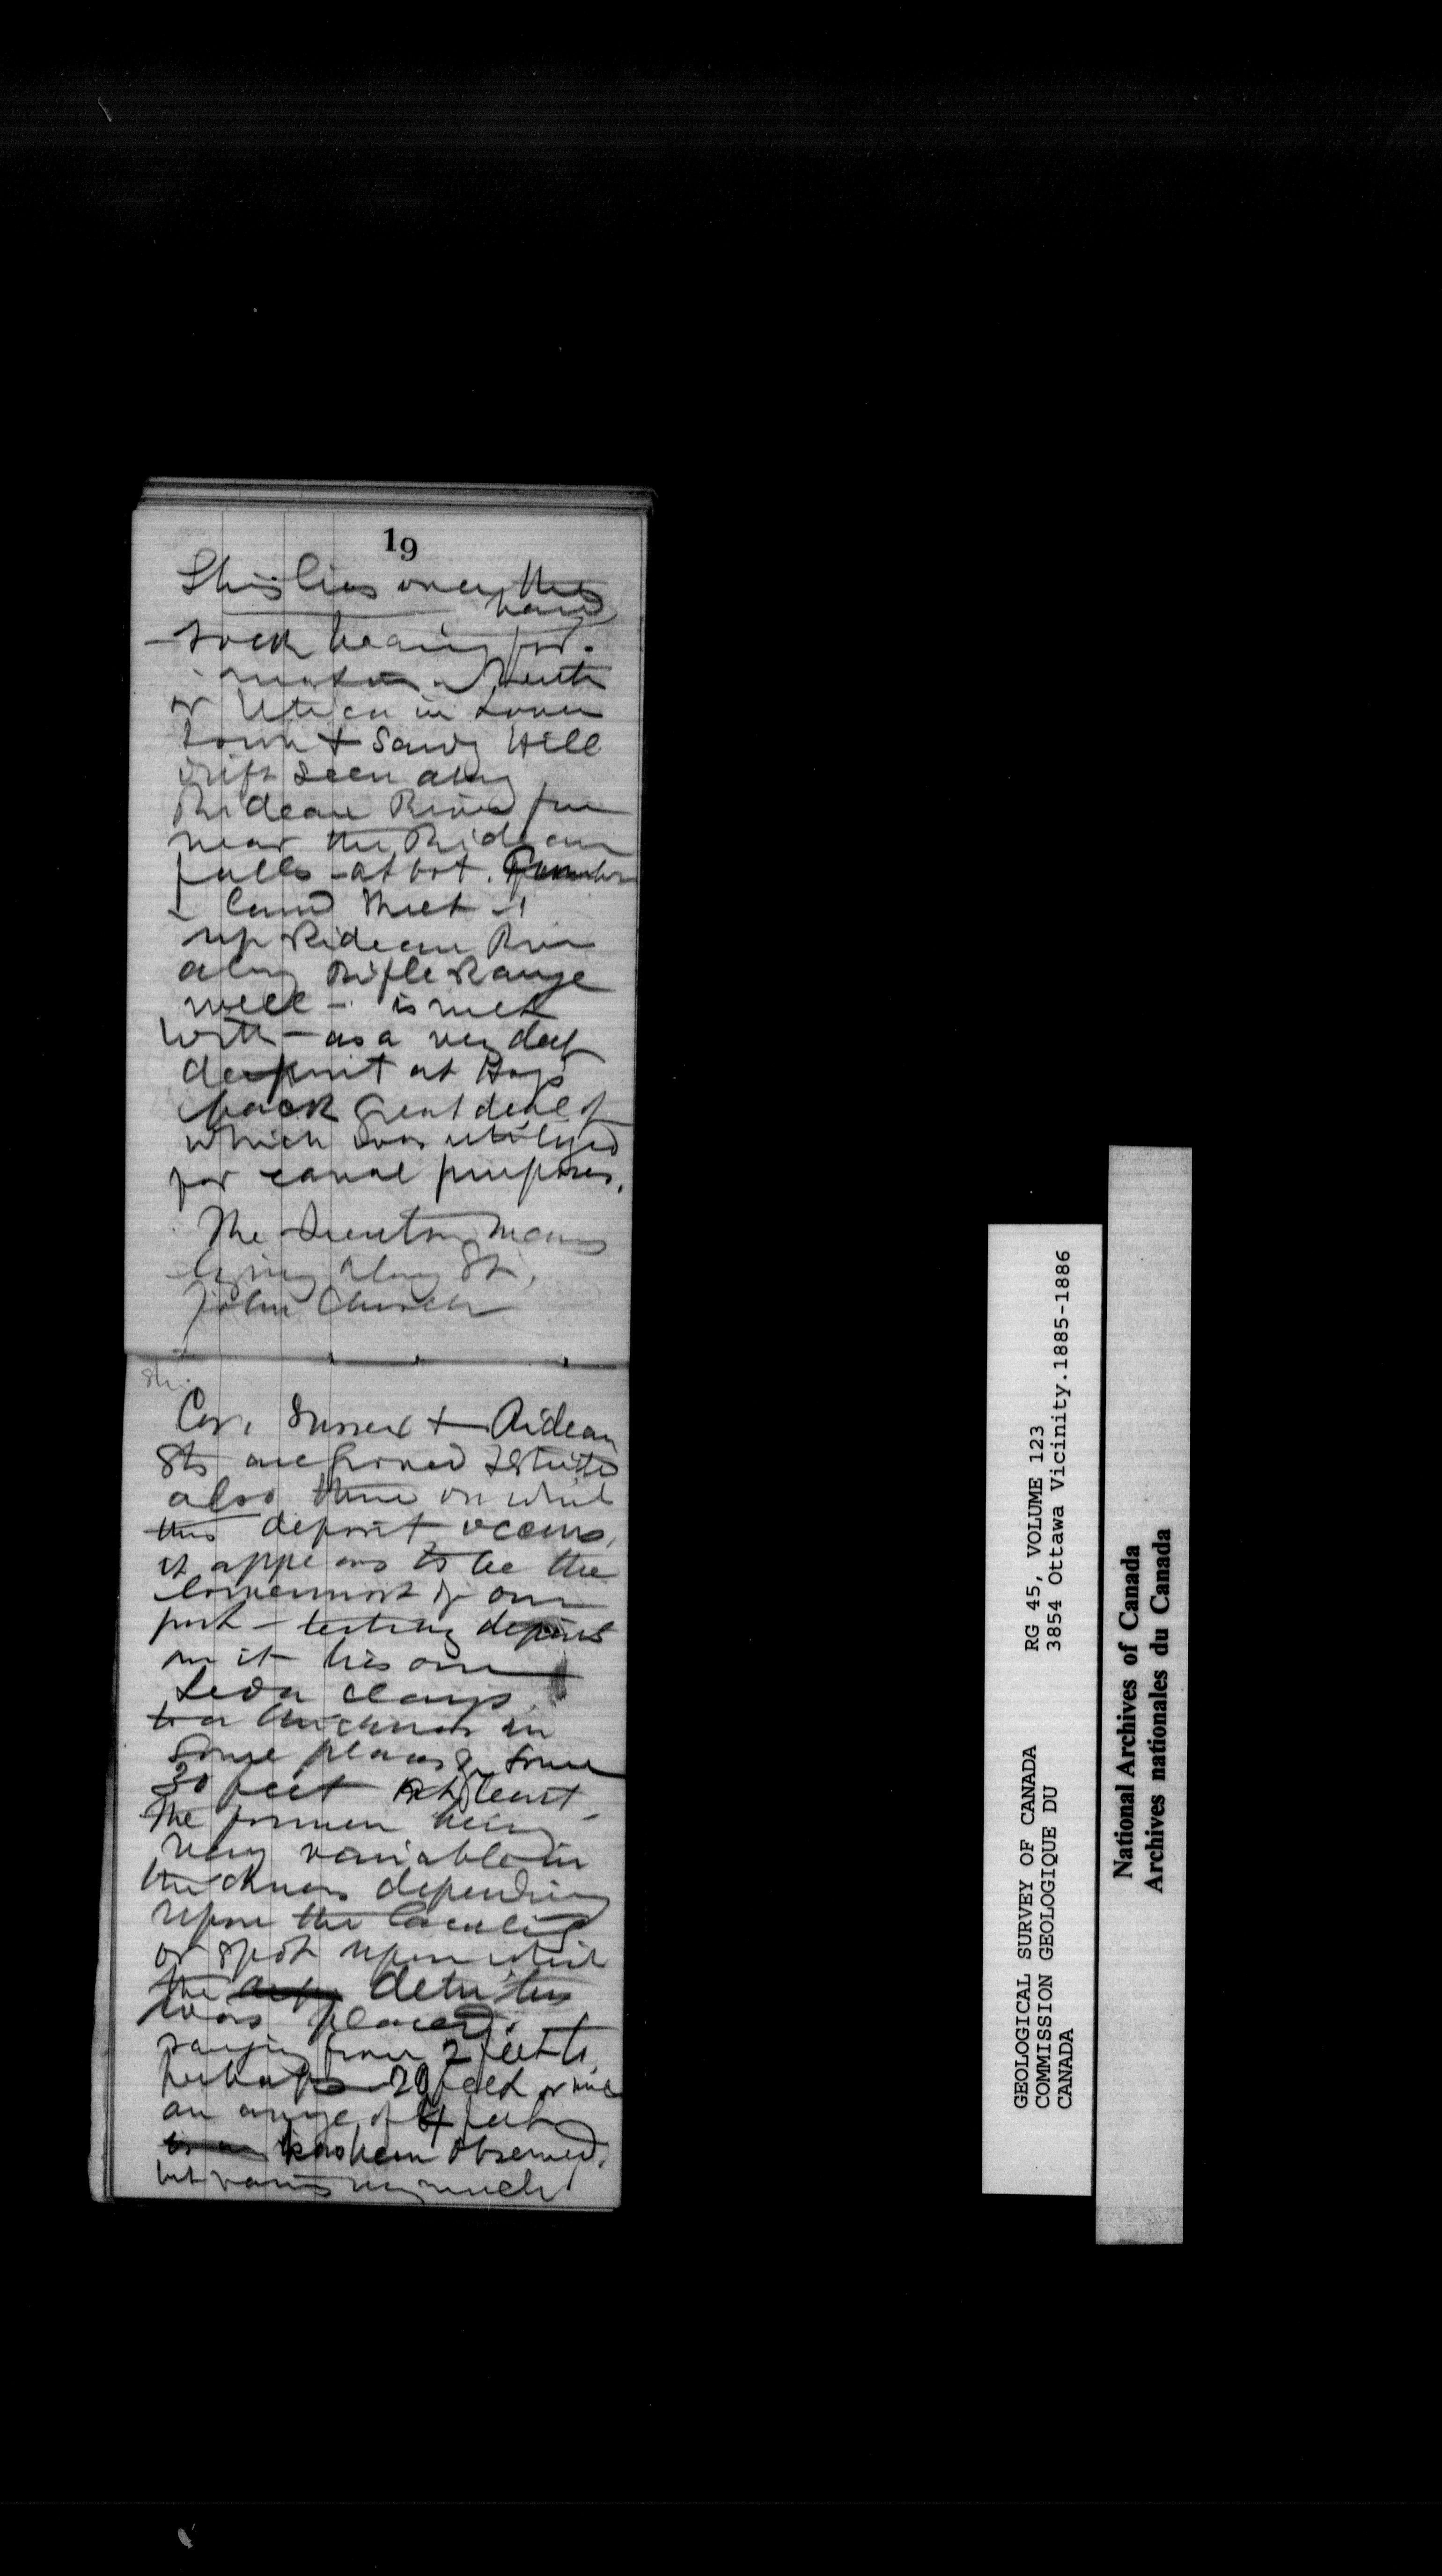 19
This lies over the
hard
rock bearing for-
mation
or Utica in Lower
town & Sandy Hill
drift seen along
Rideau River from
near the Rideau
falls - at bot.
land Street
up Rideau River
along Rifle Range
well - is met
with - as a very deep
deposit at Hogs
back great deal of
which was utilized
for canal purposes.
The Trenton
lying along St.
John Church
Cor. Sussex & Rideau
Sts are
also there on which
this deposit occurs,
it appears to be the
lowermost of our
post-tertiary deposits
on it lies our
Leda clays
thickness in
some places of some
30 feet at least,
the former being
very variable in
thickness depending
upon the locality
or spot upon which
the detritus
was placed.
ranging from 2 feet to
perhaps 20 feet or more
an average of 4 feet
has been observed.
but varies very much
GEOLOGICAL SURVEY OF CANADA
COMMISSION GEOLOGIQUE DU
CANADA
RG 45, VOLUME 123
3854 Ottawa Vicinity.1885-1886
National Archives of Canada
Archives nationales du Canada